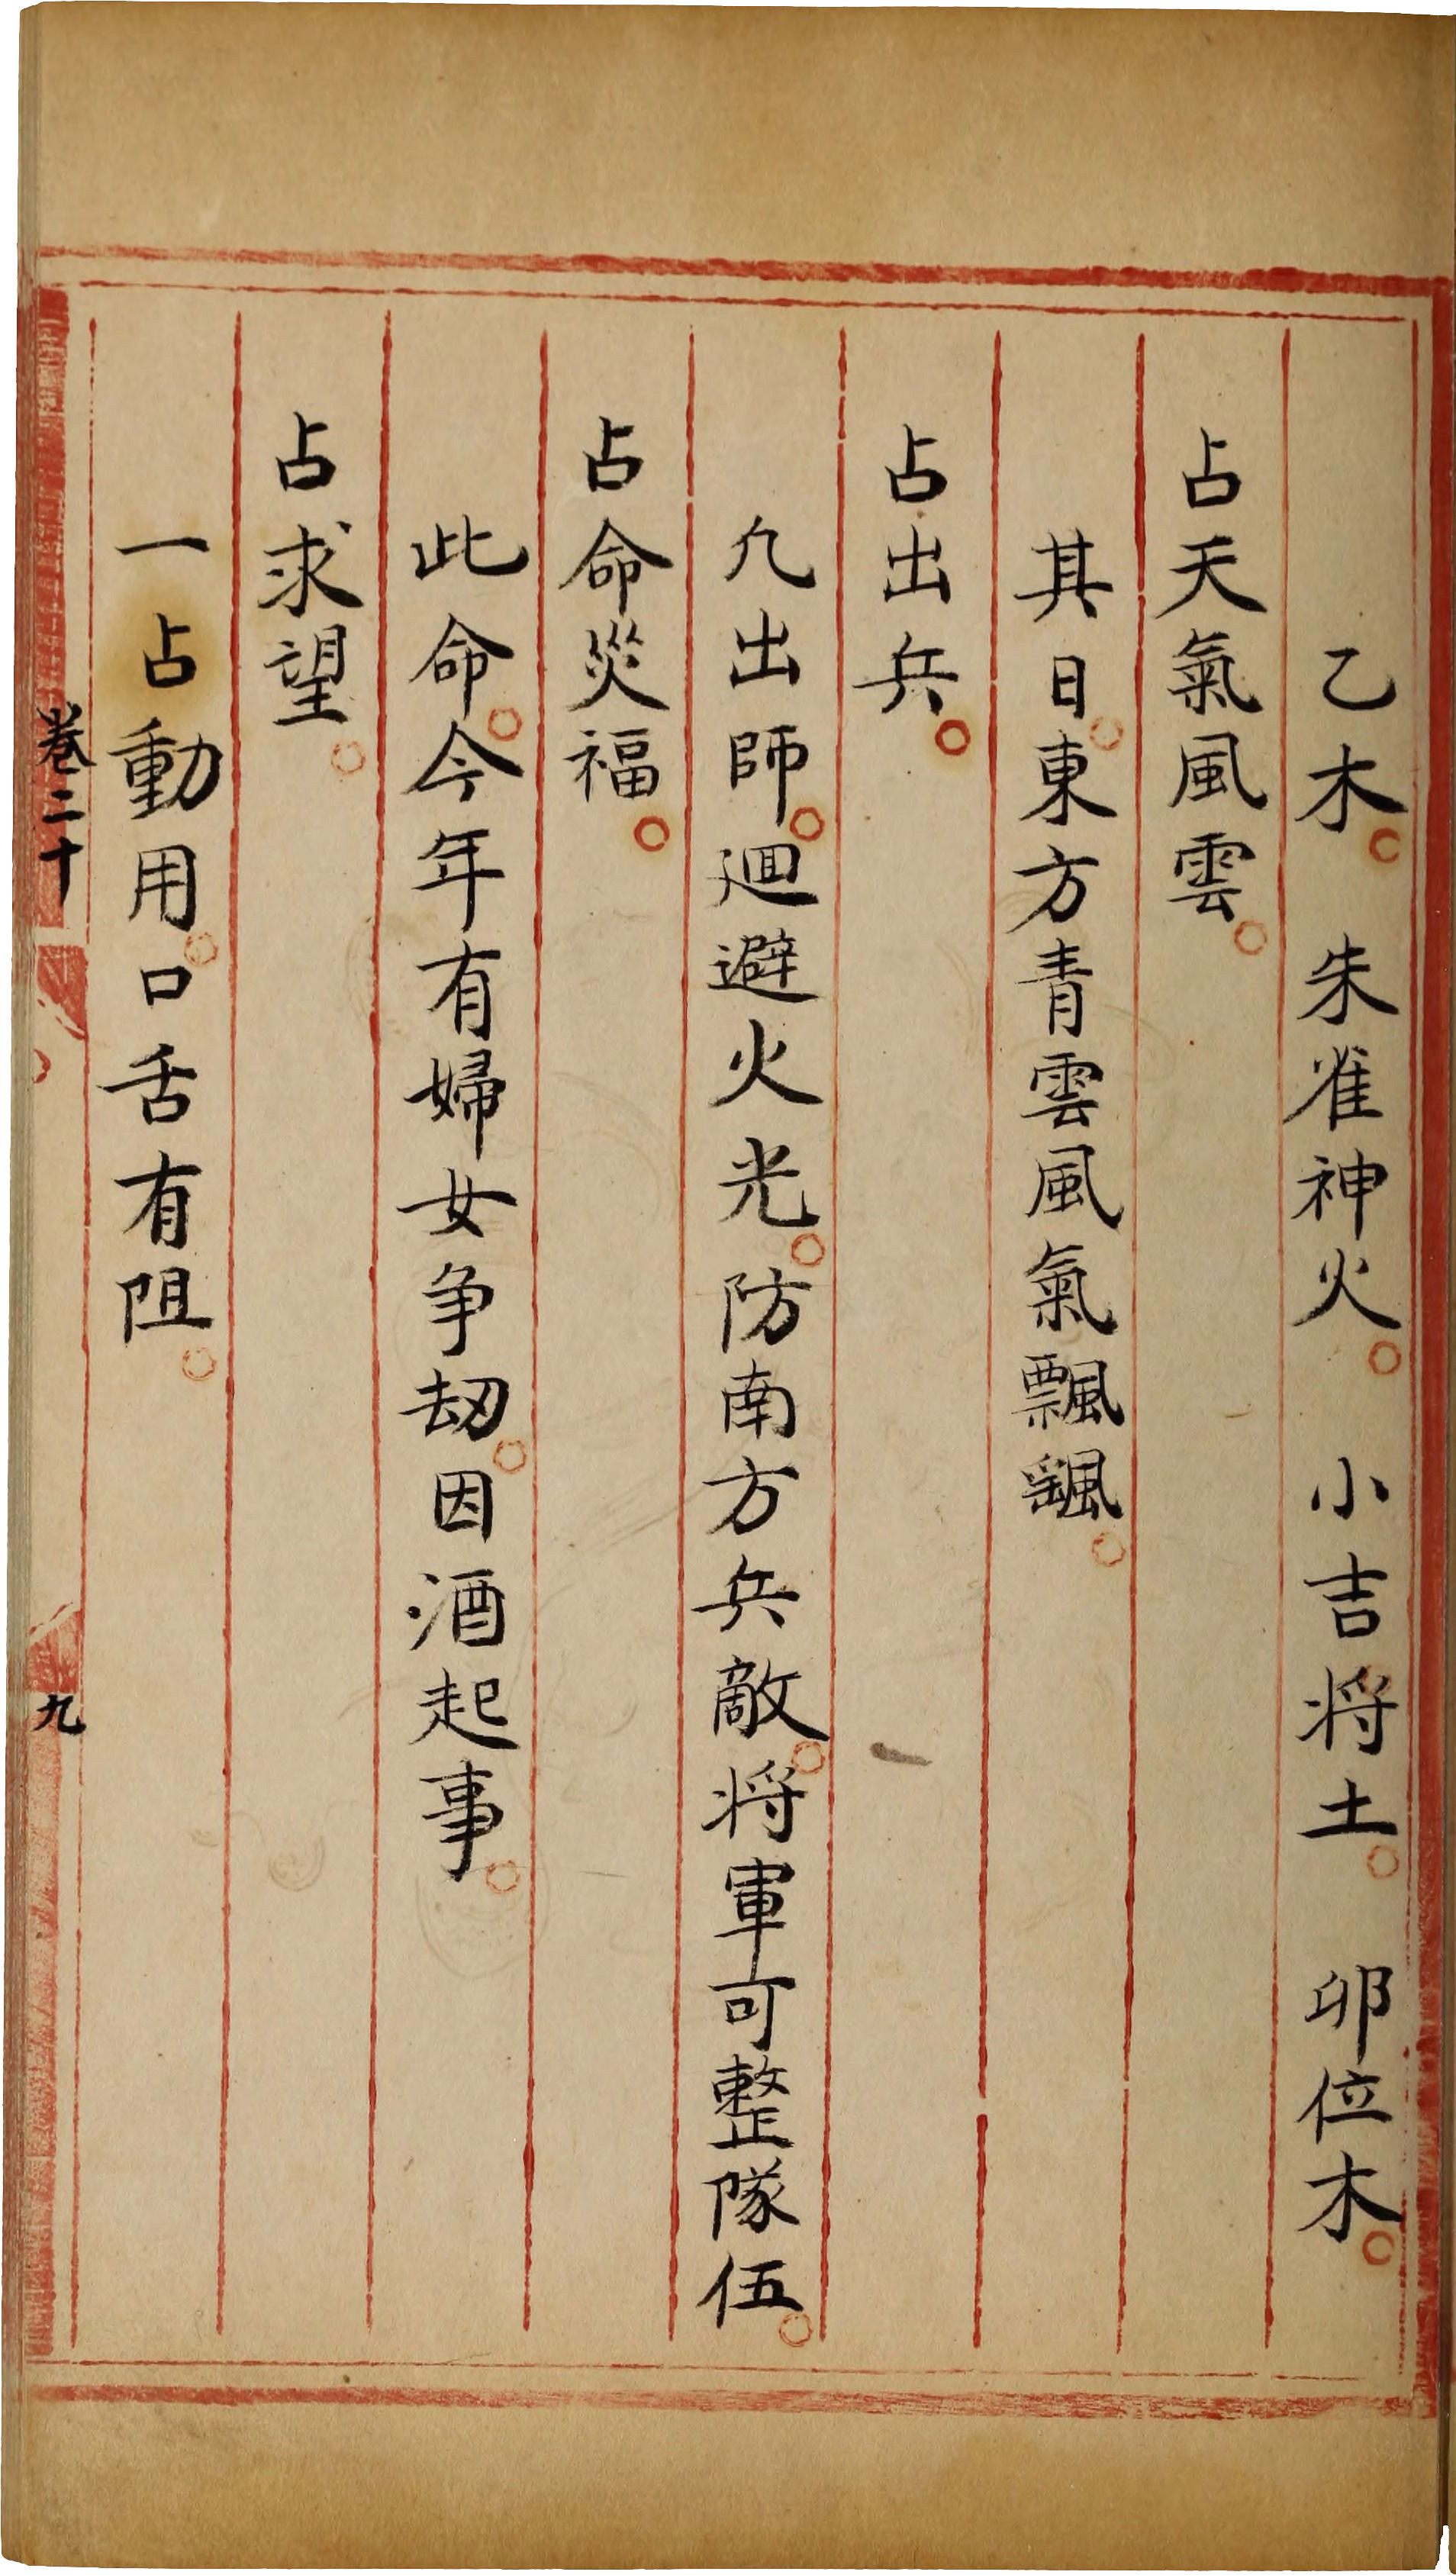 乙木。　朱雀神火。　小吉将土。　卯位木。
占天氣風雲。
其日。東方青雲風氣飄颻。
占出兵。
凢出師。迴避火光。防南方兵敵。将軍可整隊伍。
占命災福。
此命。今年有婦女争刼。因酒起事。
占求望。
一占動用。口舌有阻。
卷二十
九